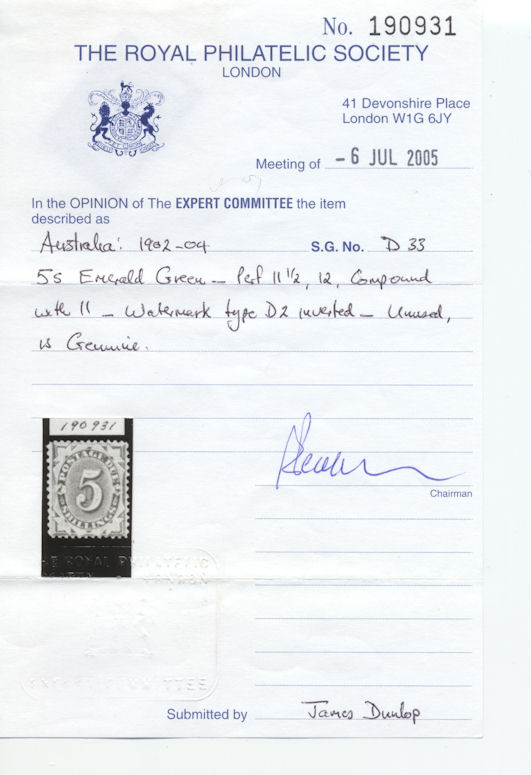 No. 190931
THE ROYAL PHILATELIC SOCIETY
LONDON
41 Devonshire Place
London W1G 6JY
Meeting of - 6 JUL 2005
In the OPINION of The EXPERT COMMITTEE the item
described as
Australia: 1902-04 S.G. No. D 33
5s Emerald Green - Perf 11 1/2, 12, Compound
with 11 - Watermark type D2 inverted - Unused,
is Genuine.
190931
POSTAGE DUE
5
SHILLINGS
Chairman
THE ROYAL PHILATELIC
SOCIETY LONDON
EXPERT COMMITTEE
Submitted by James Dunlop